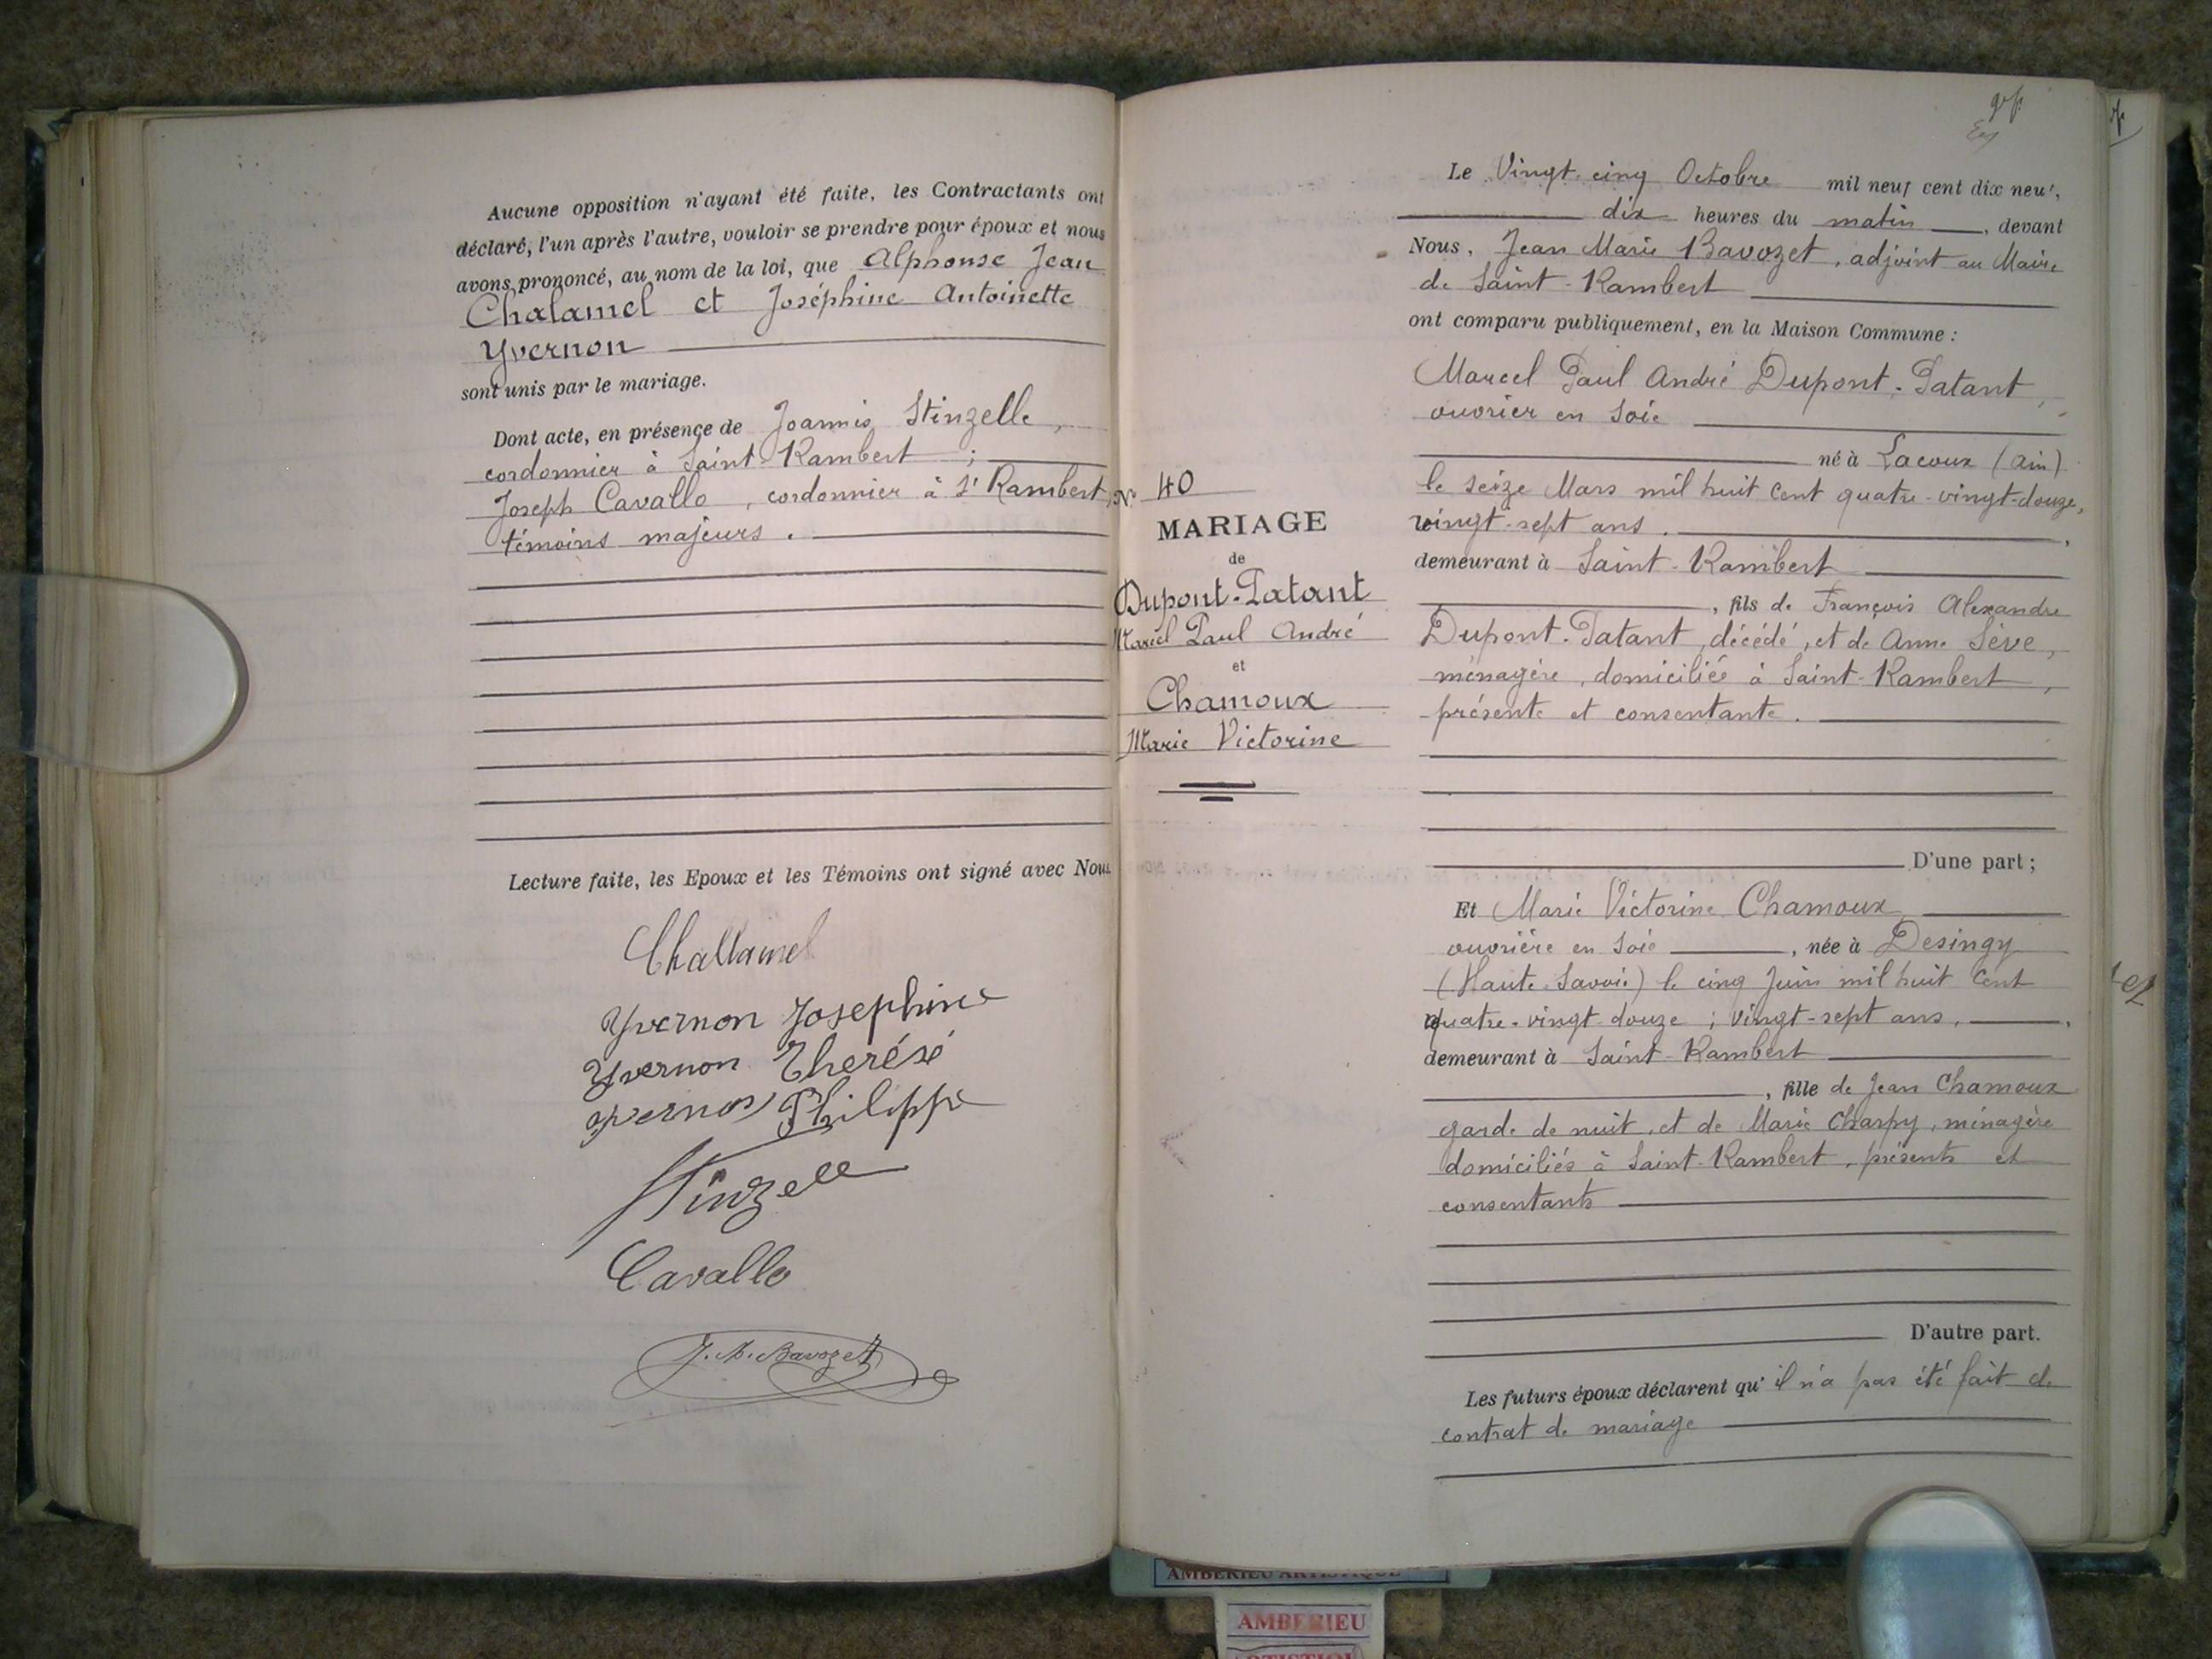 Aucune opposition n'ayant été faite, les Contractants ont
déclaré, l'un après l'autre, vouloir se prendre pour époux et nous
avons prononcé, au nom de la loi, que Alphonse Jean
Chalamel et Joséphine Antoinette
Yvernon
sont unis par le mariage.
Dont acte, en présence de Joannis Stinzelle,
cordonnier à Saint-Rambert ;
Joseph Cavallo, cordonnier à St Rambert,
témoins majeurs.
Lecture faite, les Epoux et les Témoins ont signé avec Nous.
Challamel
Yvernon Josephine
Yvernon Therésé
Yvernon Philippe
Stinzell
Cavallo
J.M. Bavozet
N° 40
MARIAGE
de
Dupont-Patant
Marcel Paul André
et
Chamoux
Marie Victorine
Le Vingt-cinq Octobre mil neuf cent dix neuf,
dix heures du matin, devant
Nous, Jean Marie Bavozet, adjoint au Maire
de Saint-Rambert
ont comparu publiquement, en la Maison Commune :
Marcel Paul André Dupont-Patant,
ouvrier en soie
né à Lacoux (Ain)
le seize Mars mil huit cent quatre-vingt-douze,
vingt-sept ans.
demeurant à Saint-Rambert
, fils de François Alexandre
Dupont-Patant, décédé, et de Anne Sève,
ménagère, domiciliée à Saint-Rambert,
présente et consentante.
D'une part ;
Et Marie Victorine Chamoux
ouvrière en soie, née à Desingy
(Haute-Savoie) le cinq Juin mil huit cent
quatre-vingt-douze ; vingt-sept ans,
demeurant à Saint-Rambert
, fille de Jean Chamoux
garde de nuit, et de Marie Charpy, ménagère
domiciliés à Saint-Rambert, présents et
consentants
D'autre part.
Les futurs époux déclarent qu'il n'a pas été fait de
contrat de mariage
AMBERIEU ARTISTIQUE
AMBERIEU